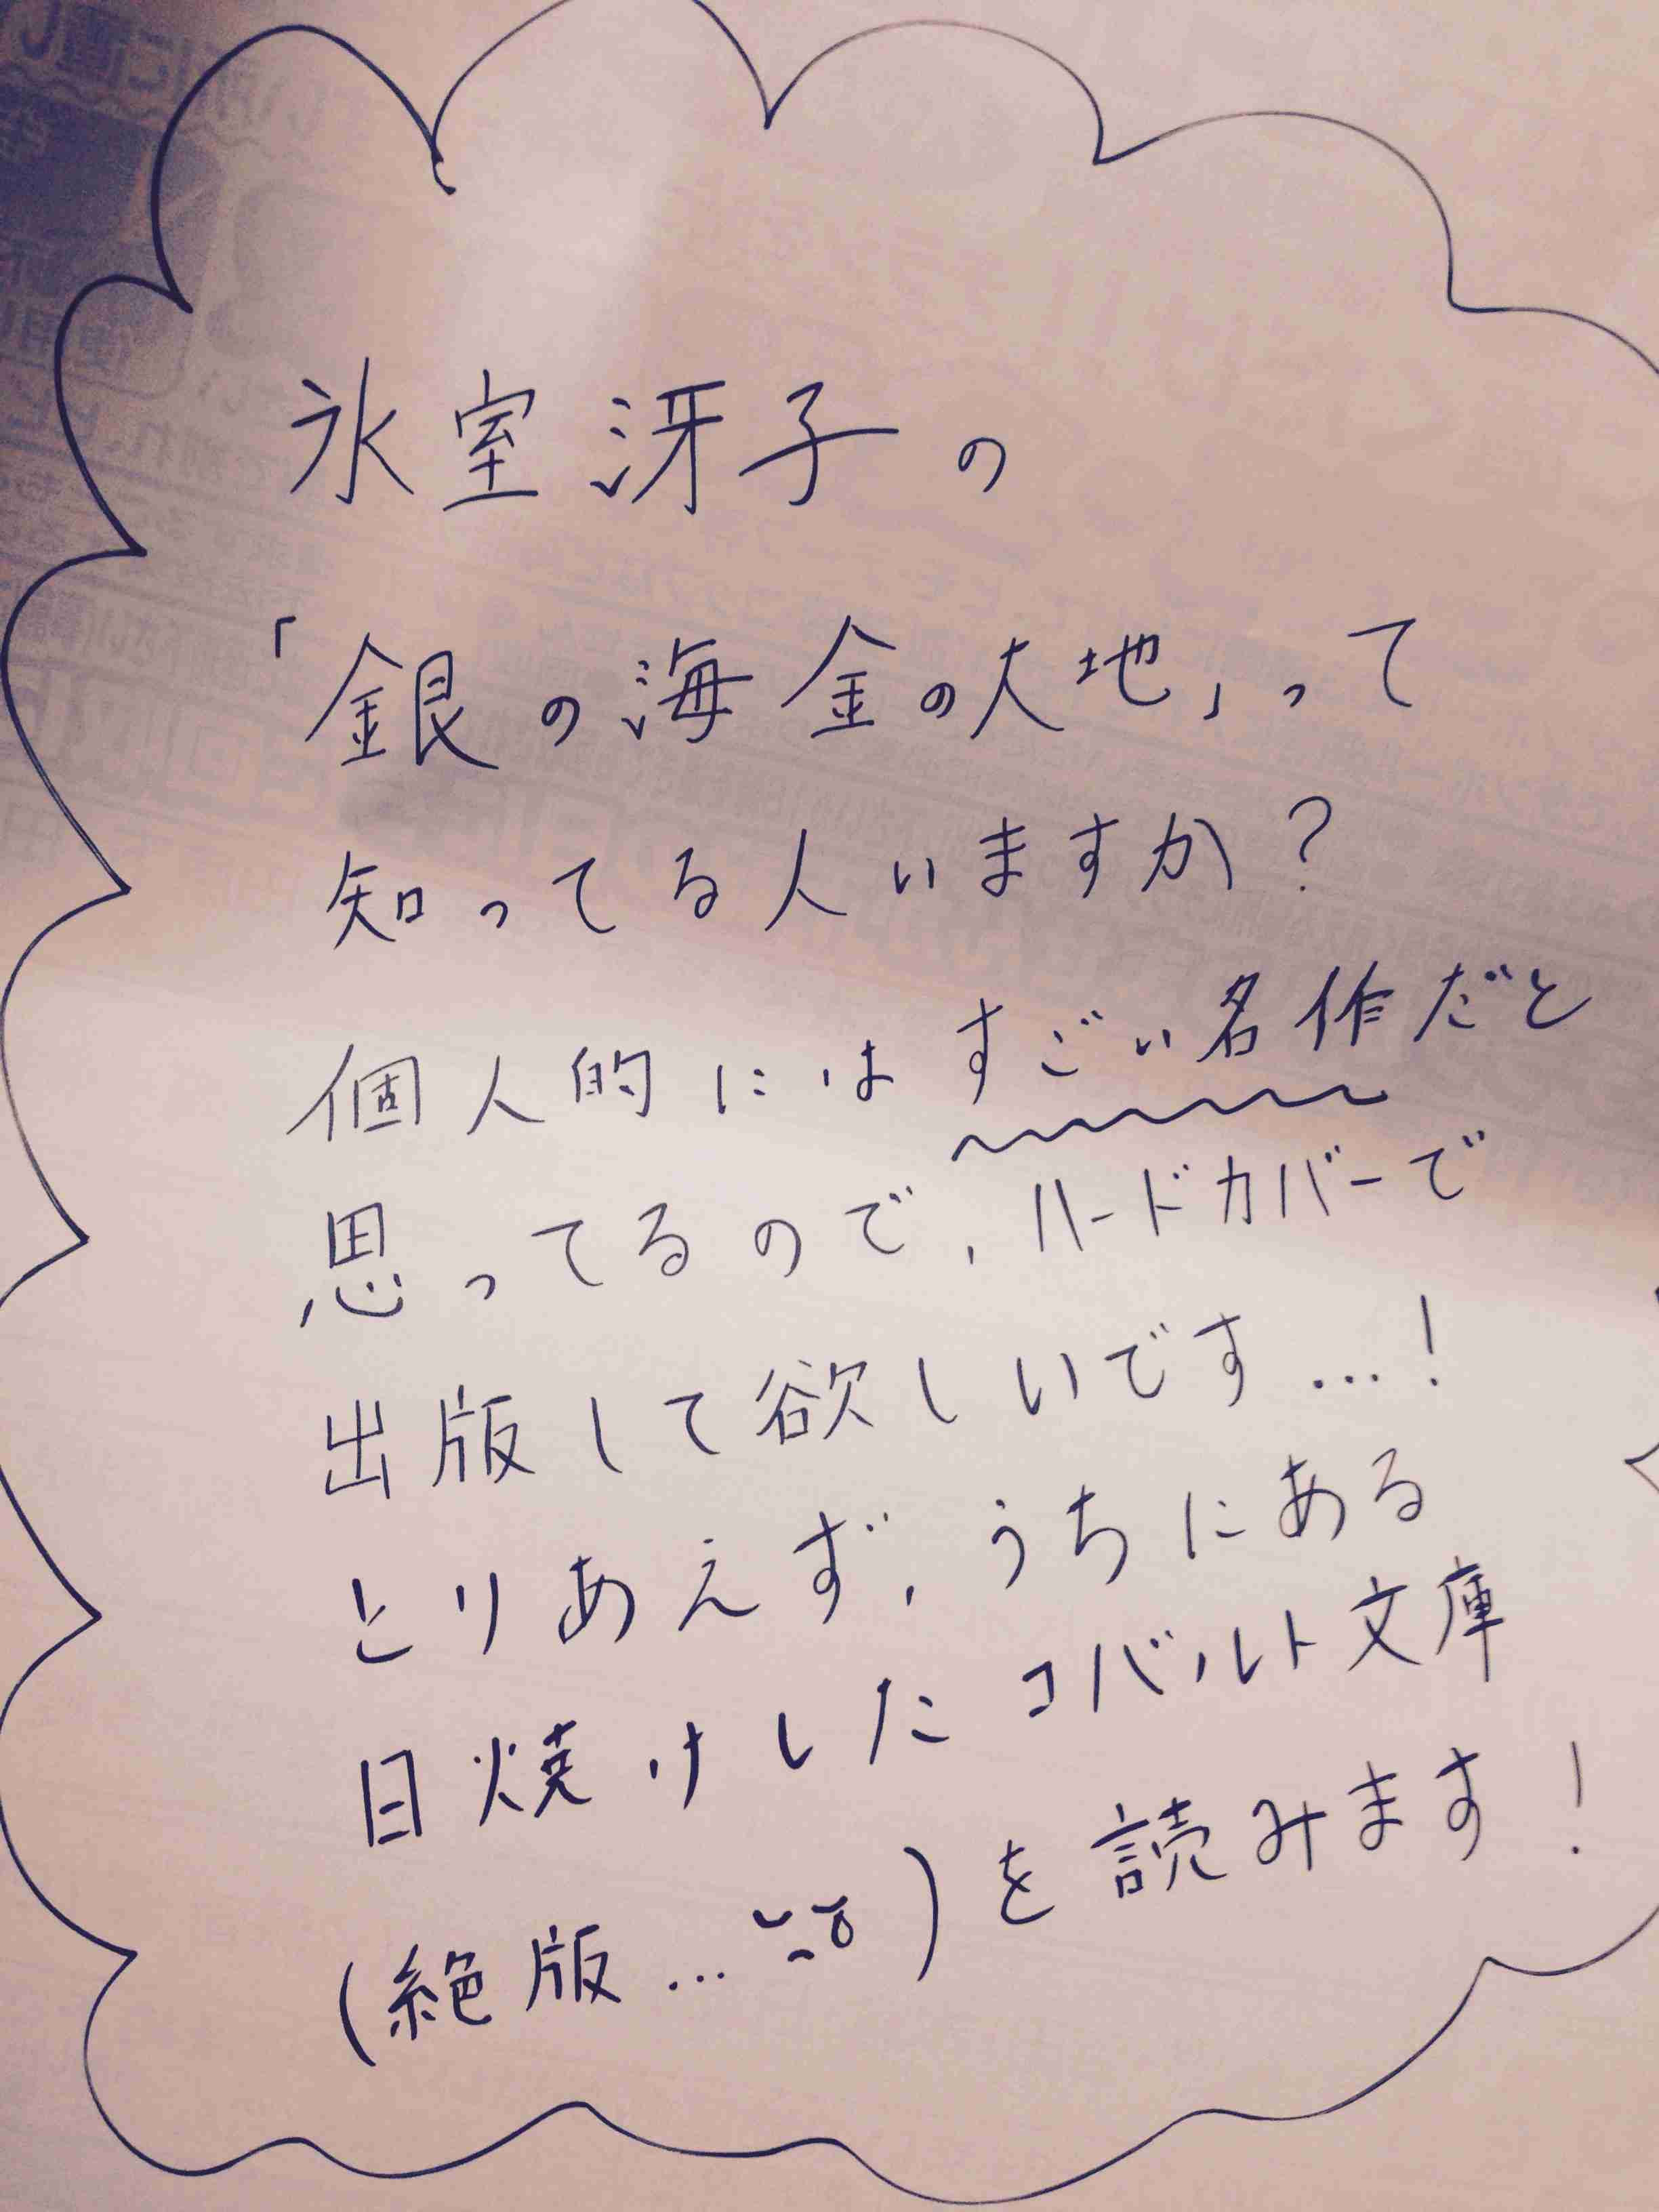 氷室冴子の
「銀の海金の大地」って
知ってる人いますか?
個人的にはすごい名作だと
思ってるので、ハードカバーで
出版して欲しいです…!
とりあえず、うちにある
日焼けしたコバルト文庫
(絶版…)を読みます!